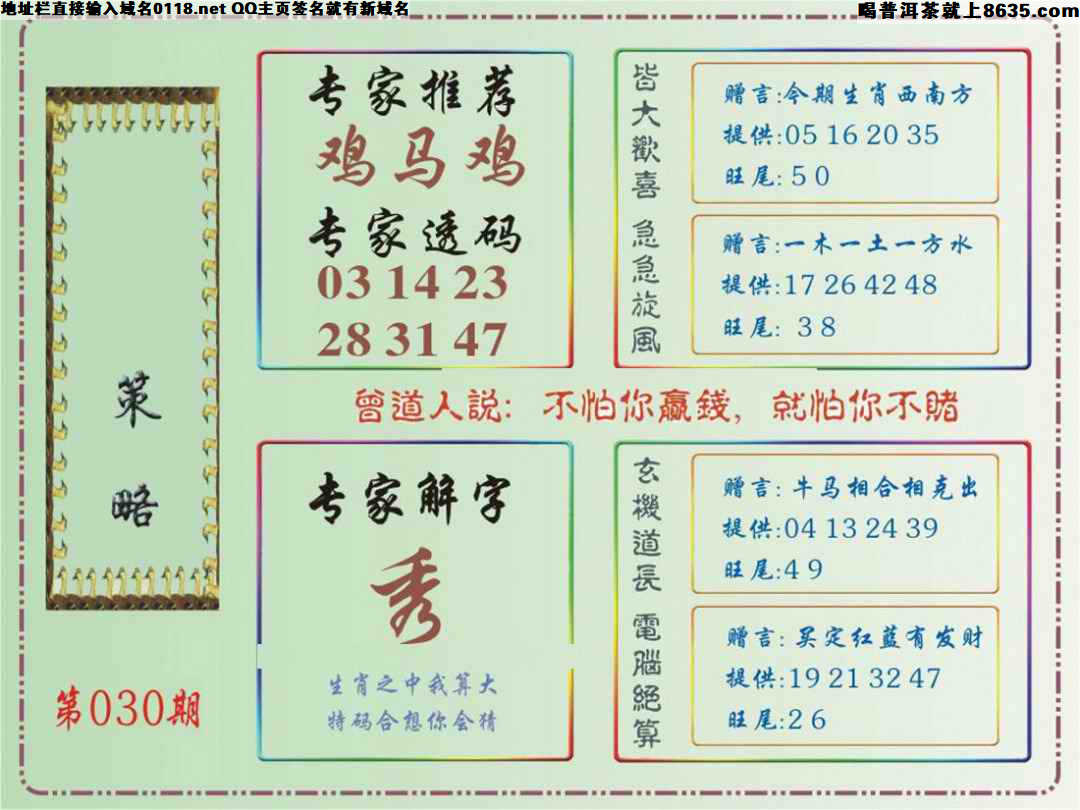 地址栏直接输入域名0118.net QQ主页签名就有新域名
喝普洱茶就上8635.com
策略
第030期
专家推荐
鸡马鸡
专家透码
03 14 23
28 31 47
皆大歡喜
赠言:今期生肖西南方
提供:05 16 20 35
旺尾: 5 0
急急旋風
赠言:一木一土一方水
提供:17 26 42 48
旺尾: 3 8
曾道人説: 不怕你贏錢, 就怕你不賭
专家解字
秀
生肖之中我算大
特码合想你会猜
玄機道長
赠言: 牛马相合相克出
提供:04 13 24 39
旺尾:4 9
電腦絕算
赠言: 买定红蓝有发财
提供:19 21 32 47
旺尾:2 6